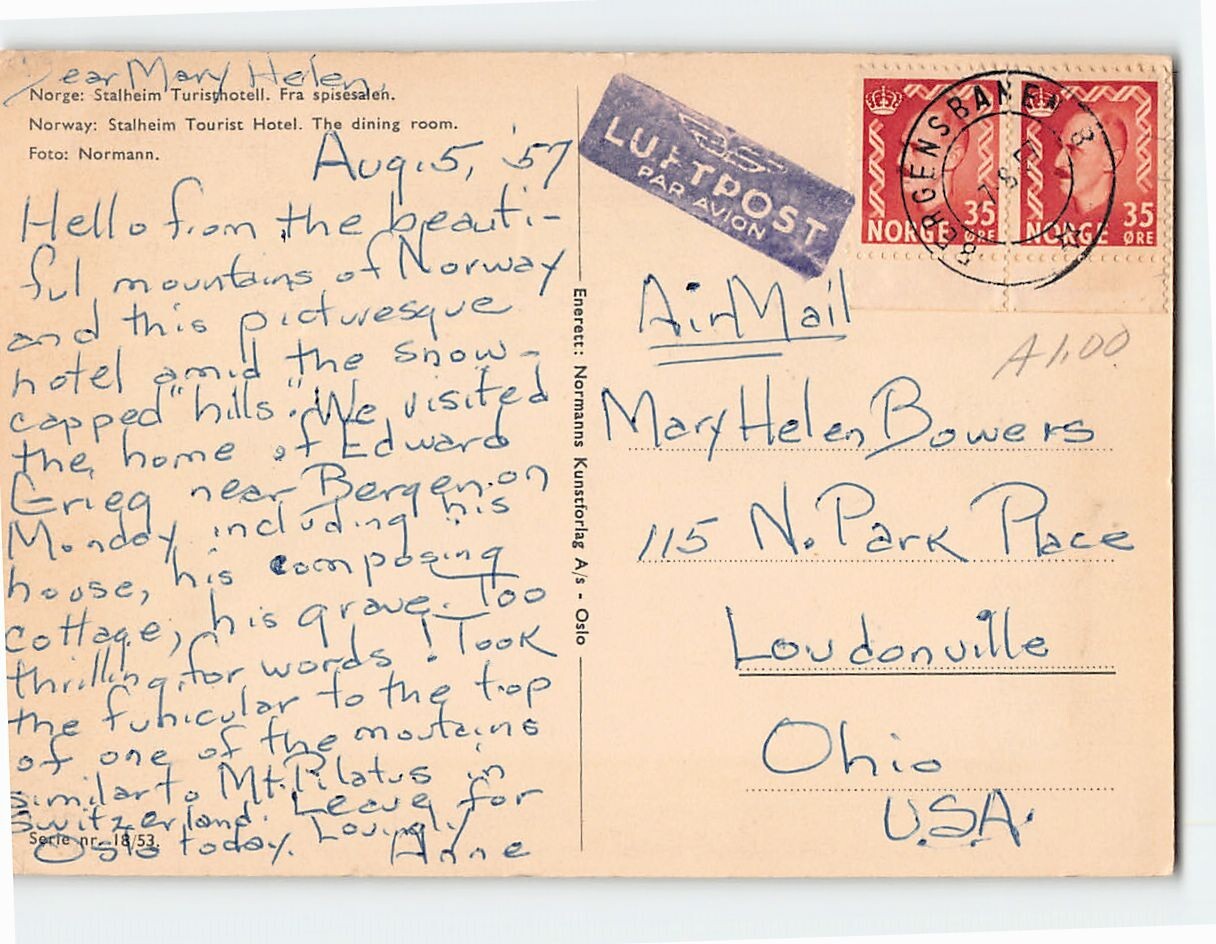 Dear Mary Helen,
Norge: Stalheim Turisthotell. Fra spisesalen.
Norway: Stalheim Tourist Hotel. The dining room.
Foto: Normann.
Aug. 5, '57
Hello from the beauti-
ful mountains of Norway
and this picturesque
hotel amid the snow-
capped "hills". We visited
the home of Edward
Grieg near Bergen on
Monday including his
house, his composing
cottage, his grave. Too
thrilling for words! Took
the funicular to the top
of one of the moutains
similar to Mt. Pilatus in
Switzerland. Leave for
Oslo today. Lovingly
Anne
Serie nr. 18/53.
Enerett: Normanns Kunstforlag A/s - Oslo
LUFTPOST
PAR AVION
35
NORGE ØRE
35
NORGE ØRE
BERGENSBANEN
Air Mail
A 1.00
Mary Helen Bowers
115 N. Park Place
Loudonville
Ohio
U.S.A.